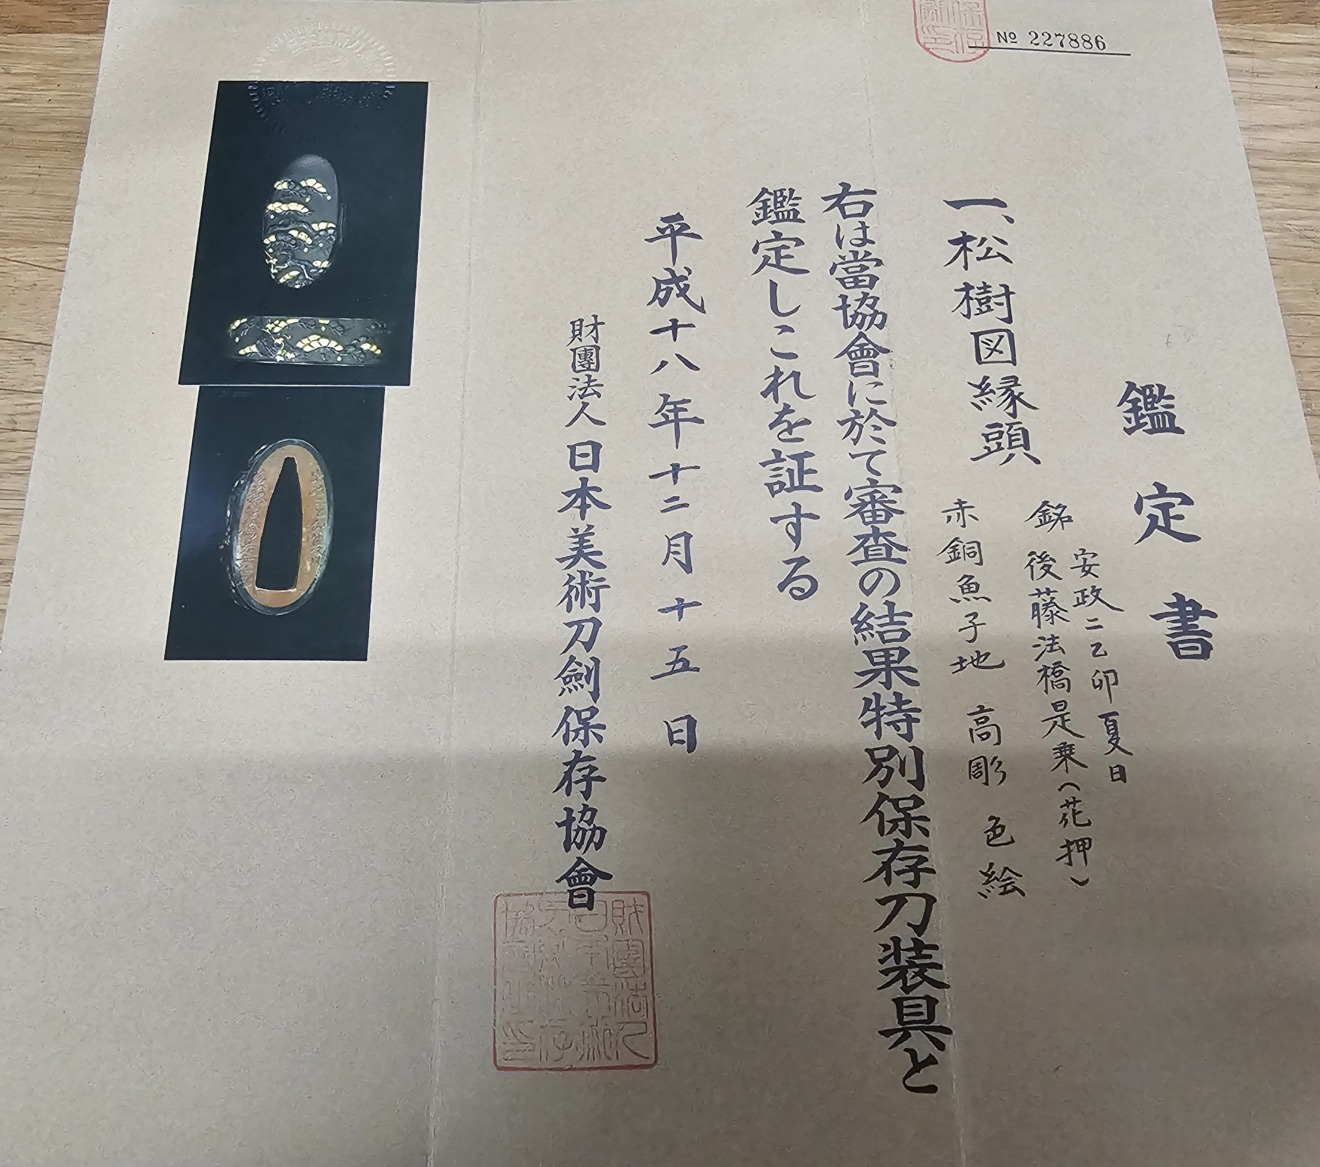 No 227886
鑑定書
一、松樹図縁頭
銘 安政二乙卯夏日
後藤法橋是乗(花押)
赤銅魚子地 高彫 色絵
右は當協會に於て審査の結果特別保存刀装具と
鑑定しこれを証する
平成十八年十二月十五日
財團法人日本美術刀劍保存協會